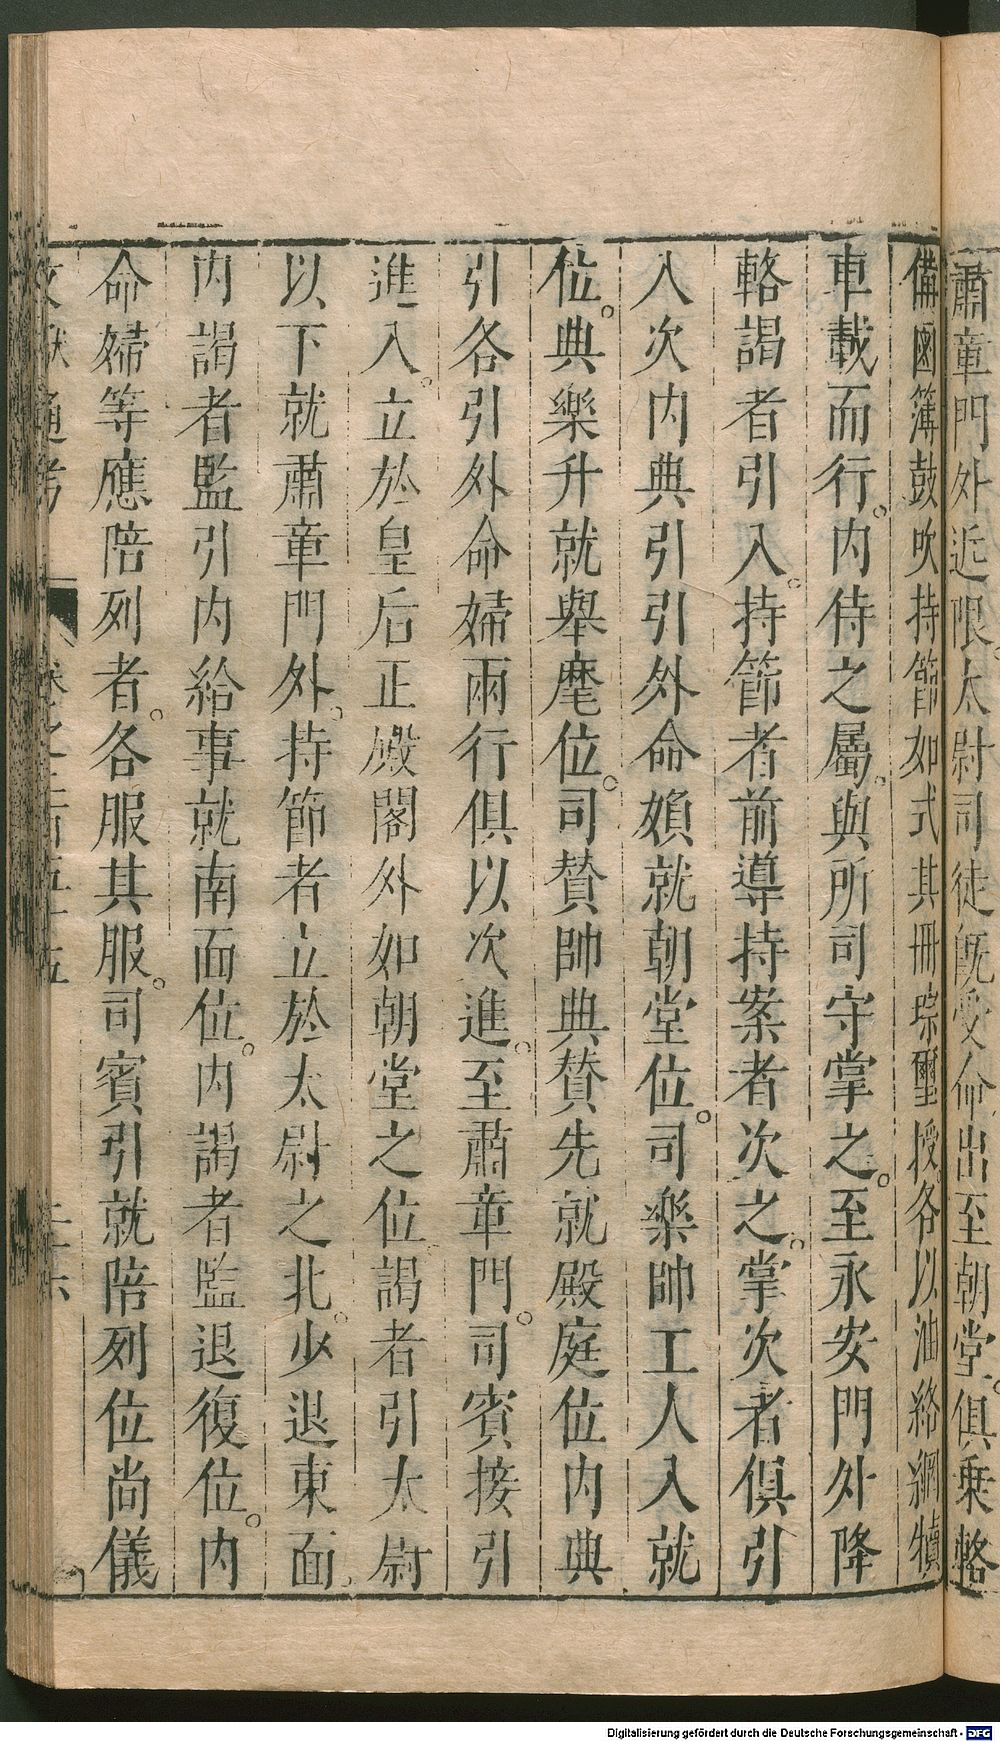 肅章門外近限太尉司徒旣受命出至朝堂。俱乗輅
備鹵簿鼓吹持節如式其冊琮璽授各以油絡網犢
車載而行。内侍之屬。與所司守掌之。至永安門外降
輅謁者引入。持節者前導持案者次之。掌次者俱引
入次内典引引外命頒就朝堂位。司樂帥工人入就
位。典樂升就舉麾位。司賛帥典賛先就殿庭位内典
引各引外命婦兩行俱以次進。至肅章門。司賓接引
進入。立於皇后正殿閤外如朝堂之位謁者引太尉
以下就肅章門外。持節者立於太尉之北。少退東面。
内謁者監引内給事就南面位。内謁者監退復位。内
命婦等應陪列者。各服其服。司賓引就陪列位尚儀
文獻通考 卷之二百五十五 二十六
Digitalisierung gefördert durch die Deutsche Forschungsgemeinschaft - DFG